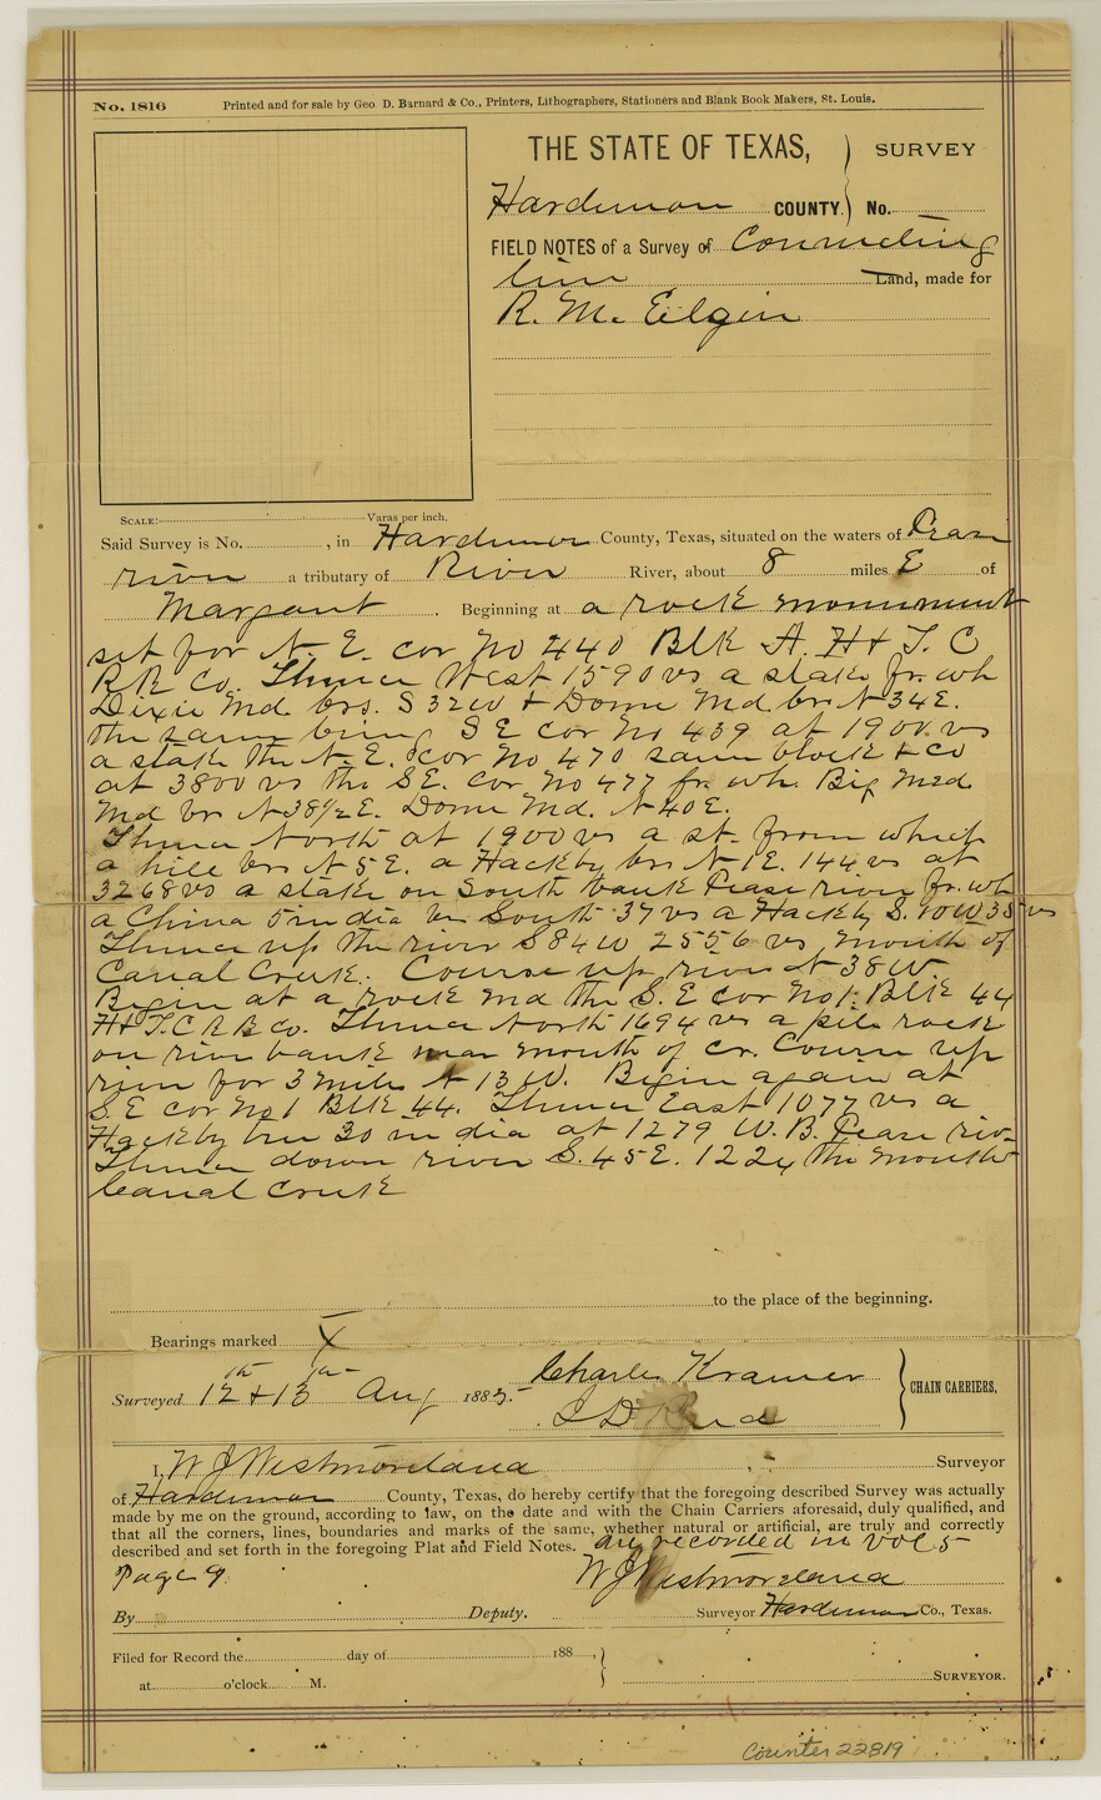 No. 1816 Printed and for sale by Geo D. Barnard & Co., Printers, Lithographers, Stationers and Blank Book Makers, St. Louis.
THE STATE OF TEXAS, } SURVEY
Hardeman COUNTY. } No.
FIELD NOTES of a Survey of Connecting
line Land, made for
R. M. Elgin
SCALE: Varas per inch.
Said Survey is No. , in Hardeman County, Texas, situated on the waters of Pease
river a tributary of River River, about 8 miles E of
Margaret . Beginning at a rock monument
set for N. E. cor No 440 Blk A. H & T. C
R R Co. Thence West 1590 vs a stake fr. wh
Dixie Md. brs. S 32 W & Dome Md. br N 34 E.
the same being S E cor No 439 at 1900 vs
a stake the N. E. cor No 470 same block & co
at 3800 vs the S E. cor No 477 fr. wh. Big Med
Md br N 38 1/2 E. Dome Md. N 40 E.
Thence North at 1900 vs a st. from which
a hile brs N 5 E. a Hackby brs N 1 E. 144 vs at
3268 vs a stake on South bank Pease river fr. wh
a China 5 in dia br South 37 vs a Hackby S. 10 W 38 vs
Thence up the river S 84 W 2556 vs mouth of
Canal Creek. Course up river N 38 W.
Begin at a rock Md the S. E cor No 1. Blk 44
H & T. C R R Co. Thence North 1694 vs a pile rock
on river bank near mouth of cr. Course up
river for 3 miles N 13 W. Begin again at
S. E cor No 1 Blk 44. Thence East 1077 vs a
Hackby tree 30 in dia at 1279 W. B. Pease riv-
Thence down river S. 45 E. 1224 the mouth
Canal Creek
to the place of the beginning.
Bearings marked X
Surveyed 12th & 13th Aug 1885. Charles Kramer } CHAIN CARRIERS.
I, W J Westmoreland Surveyor
of Hardeman County, Texas, do hereby certify that the foregoing described Survey was actually
made by me on the ground, according to law, on the date and with the Chain Carriers aforesaid, duly qualified, and
that all the corners, lines, boundaries and marks of the same, whether natural or artificial, are truly and correctly
described and set forth in the foregoing Plat and Field Notes. are recorded in vol 5
Page 9
W J Westmoreland
By Deputy. Surveyor Hardeman Co., Texas.
Filed for Record the day of 188 , }
at o'clock M. SURVEYOR.
Counter 22819